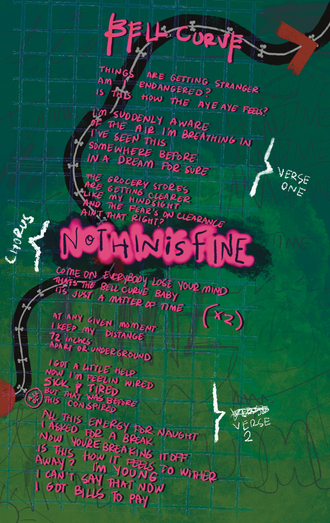 BELL CURVE
THINGS ARE GETTING STRANGER
AM I ENDANGERED?
IS THIS HOW THE AYE AYE FEELS?
I'M SUDDENLY AWARE
OF THE AIR I'M BREATHING IN
I'VE SEEN THIS
SOMEWHERE BEFORE
IN A DREAM FOR SURE
VERSE
ONE
THE GROCERY STORES
ARE GETTING CLEARER
LIKE MY HINDSIGHT
AND THE FEAR'S ON CLEARANCE
AIN'T THAT RIGHT?
CHORUS
NOTHIN IS FINE
COME ON EVERYBODY LOSE YOUR MIND
THATS THE BELL CURVE BABY
ITS JUST A MATTER OF TIME
(x2)
AT ANY GIVEN MOMENT
I KEEP MY DISTANCE
72 INCHES
APART OR UNDERGROUND
I GOT A LITTLE HELP
NOW I'M FEELIN WIRED
SICK & TIRED
BUT THAT WAS BEFORE
THIS CONSPIRED
VERSE
2
ALL THIS ENERGY FOR NAUGHT
I ASKED FOR A BREAK
NOW YOU'RE BREAKING IT OFF
IS THIS HOW IT FEELS TO WITHER
AWAY? I'M YOUNG
I CAN'T SAY THAT NOW
I GOT BILLS TO PAY